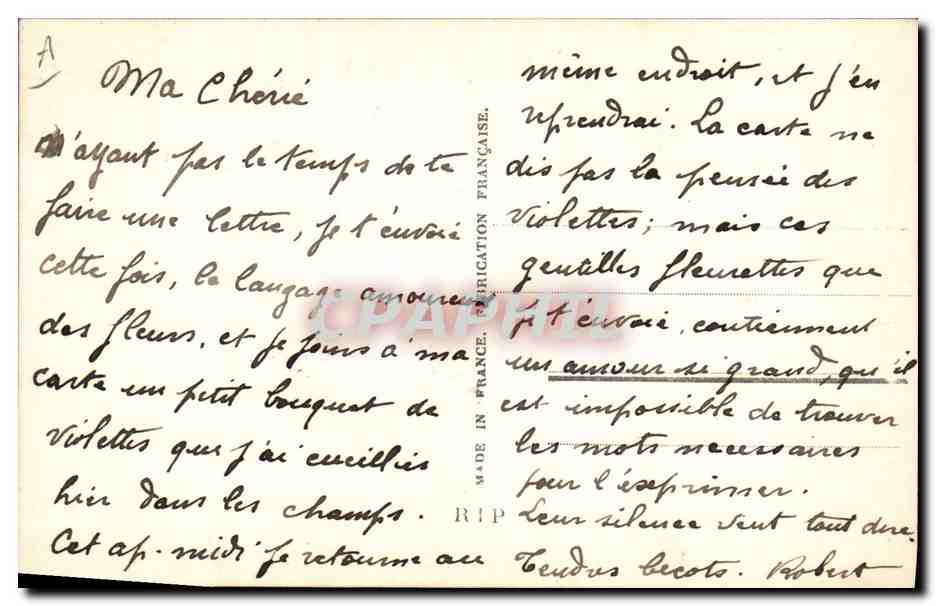 A
Ma Chérie
N'ayant pas le temps de te
faire une lettre, je t'envoie
cette fois, le langage amoureux
des fleurs, et je joins à ma
carte un petit bouquet de
violettes que j'ai cueillies
hier dans les champs.
Cet ap-midi je retourne au
MADE IN FRANCE. FABRICATION FRANÇAISE.
RIP
même endroit, et j'en
reprendrai. La carte ne
dis pas la pensée des
violettes; mais ces
gentilles fleurettes que
je t'envoie, contiennent
un amour si grand, qu'il
est impossible de trouver
les mots nécessaires
pour l'exprimer.
Leur silence veut tout dire.
Tendres becots. Robert
CPAPHIL